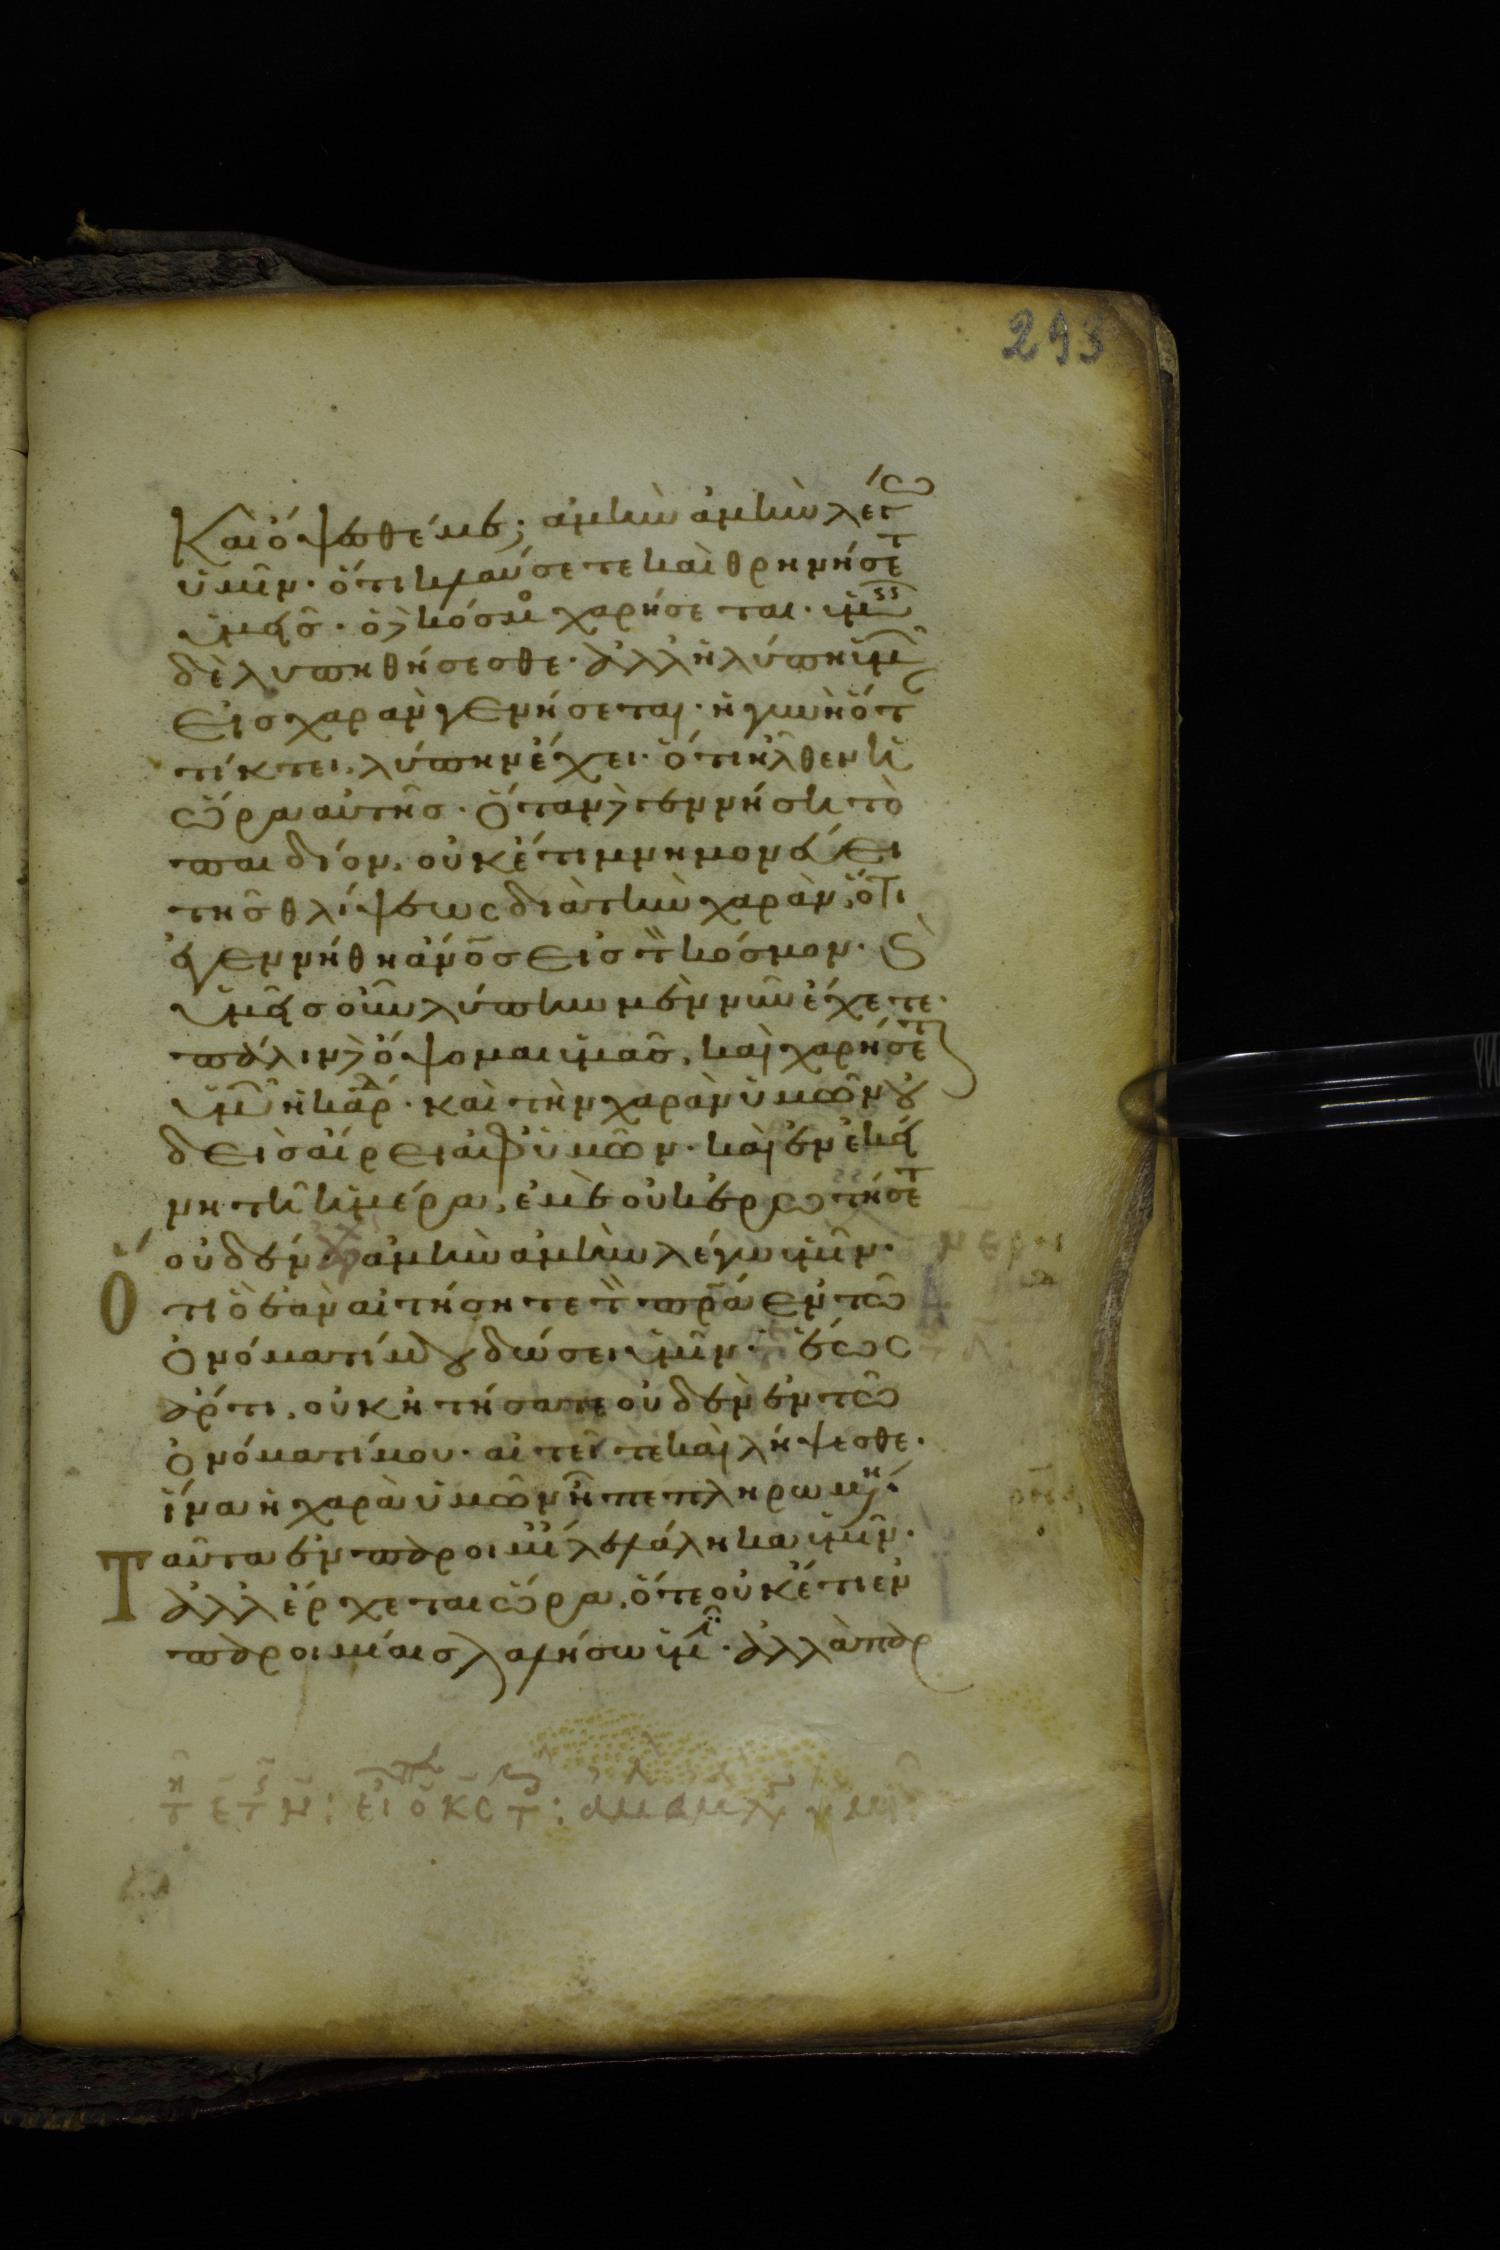 293
Καὶ ὄψεσθέ με; ἀμὴν ἀμὴν λέγω
ὑμῖν· ὅτι κλαύσετε καὶ θρηνήσετ
ὑμεῖς· ὁ δὲ κόσμο χαρήσεται· ὑμεῖς
δὲ λυπηθήσεσθε· ἀλλ ἡ λύπη ὑμῶν
εἰς χαρὰν γενήσεται· ἡ γυνὴ ὅτ
τίκτει, λύπην ἔχει· ὅτι ἦλθεν ἡ
ὥρα αὐτῆς· ὅταν δὲ γεννήσῃ τὸ
παιδίον, οὐκέτι μνημονεύει
τῆς θλίψεως διὰ τὴν χαρὰν, ὅτι
ἐγεννήθη ἄνος εἰς τὸν κόσμον· καὶ
ὑμεῖς οὖν λύπην μὲν νῦν ἔχετε·
πάλιν δὲ ὄψομαι ὑμᾶς, καὶ χαρήσετ
ὑμῶν ἡ καρδ· καὶ τὴν χαρὰν ὑμῶν οὐ
δεὶς αἴρει ἀφ ὑμῶν· καὶ ἐν ἐκεί
νῃ τῇ ἡμέρα, ἐμὲ οὐκ ἐρωτήσετ
οὐδέν· ἀμὴν ἀμὴν λέγω ὑμῖν·
Ὅτι ὃ ἐὰν αἰτήσητε τὸν πρα ἐν τῶ
ὀνόματί μου δώσει ὑμῖν· ἕως
ἄρτι, οὐκ ἠτήσατε οὐδὲν ἐν τῶ
ὀνόματί μου· αἰτεῖτε καὶ λήψεσθε·
ἵνα ἡ χαρὰ ὑμῶν ῆ πεπληρωμένη·
Ταῦτα ἐν παροιμίαις λελάληκα ὑμῖν·
ἀλλ ἔρχεται ὥρα, ὅτε οὐκέτι ἐν
παροιμίαις λαλήσω ὑμῖν· ἀλλὰ παρ